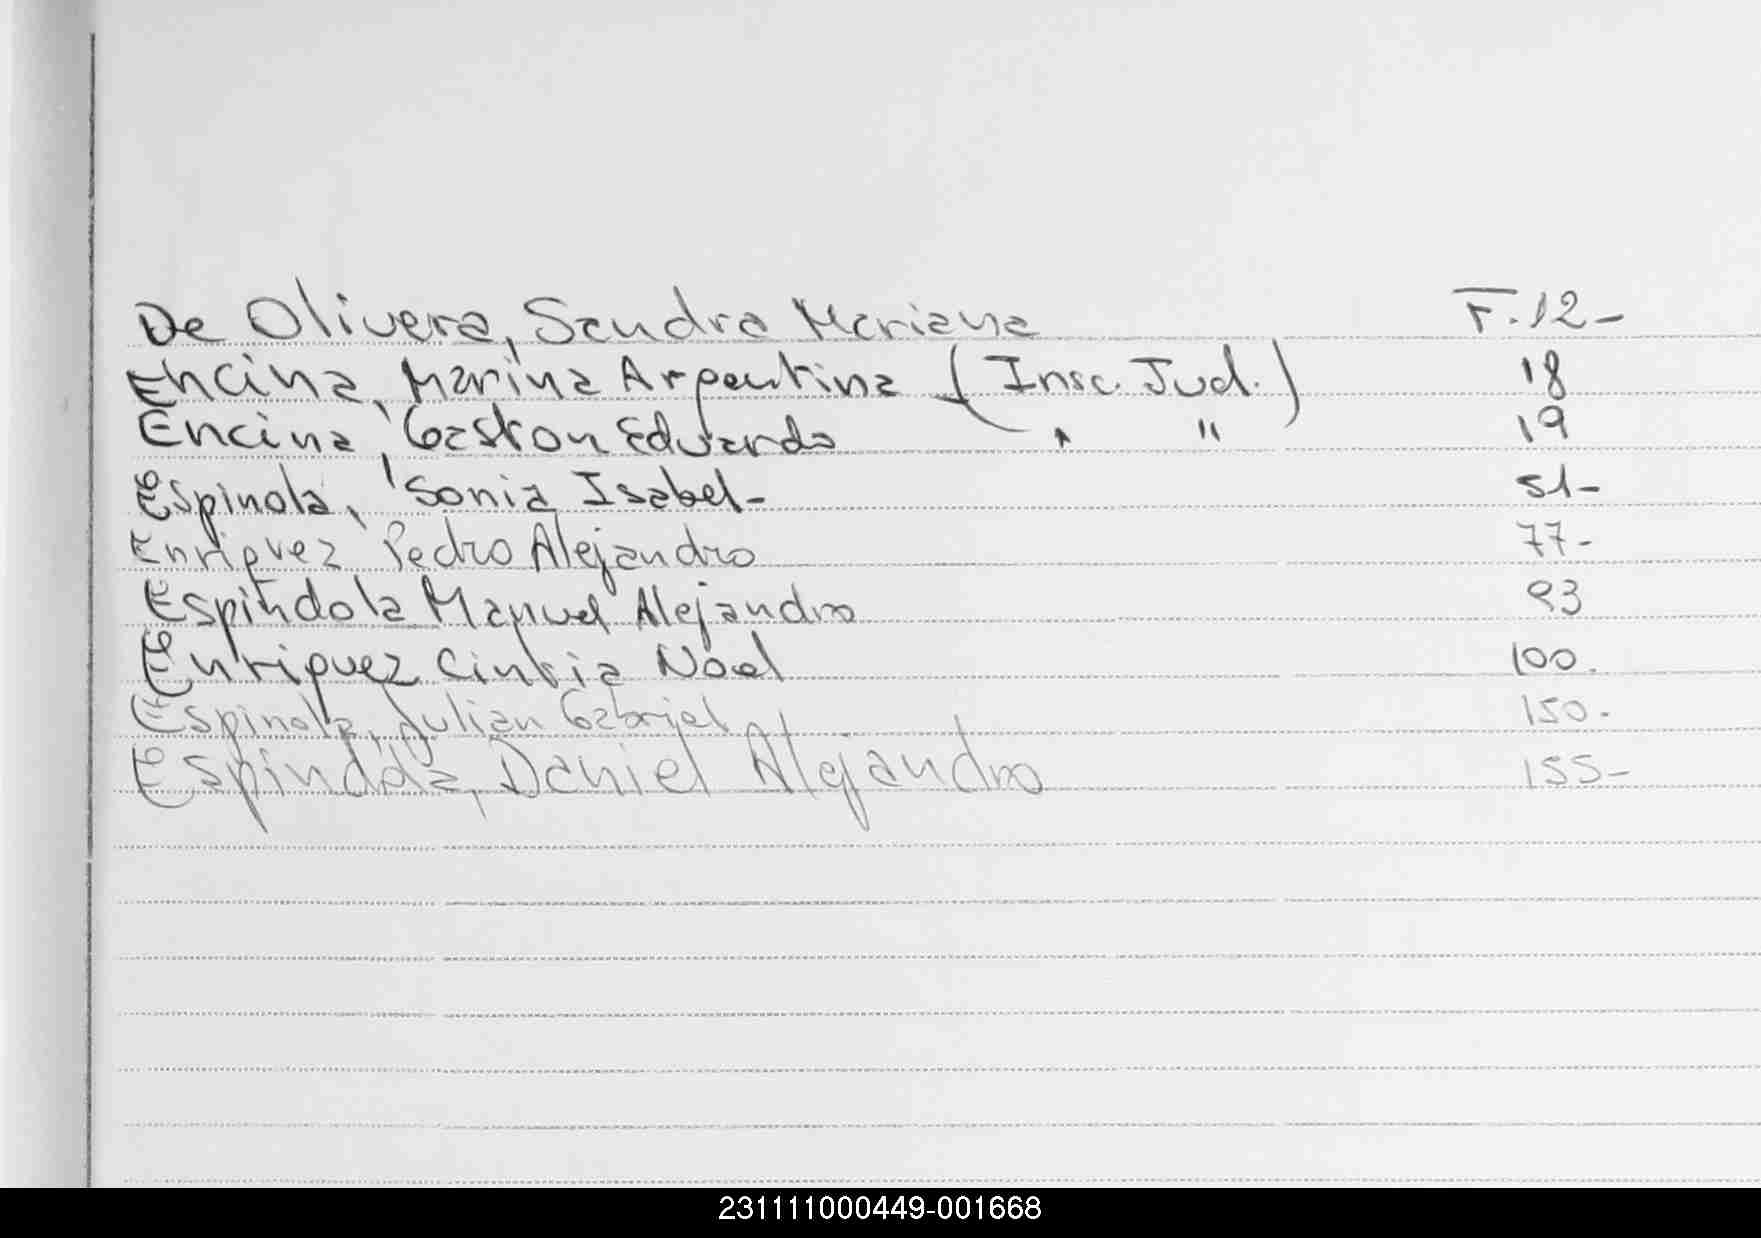 De Olivera, Sandra Mariana F.12-
Encina, Marina Argentina (Insc. Jud.) 18
Encina, Gaston Eduardo " " 19
Espinola, Sonia Isabel- 51-
Enriquez Pedro Alejandro 77-
Espindola Manuel Alejandro 93
Enriquez Cintia Noel 100.
Espinola, Julian Gabriel 150.
Espindola, Daniel Alejandro 155-
231111000449-001668